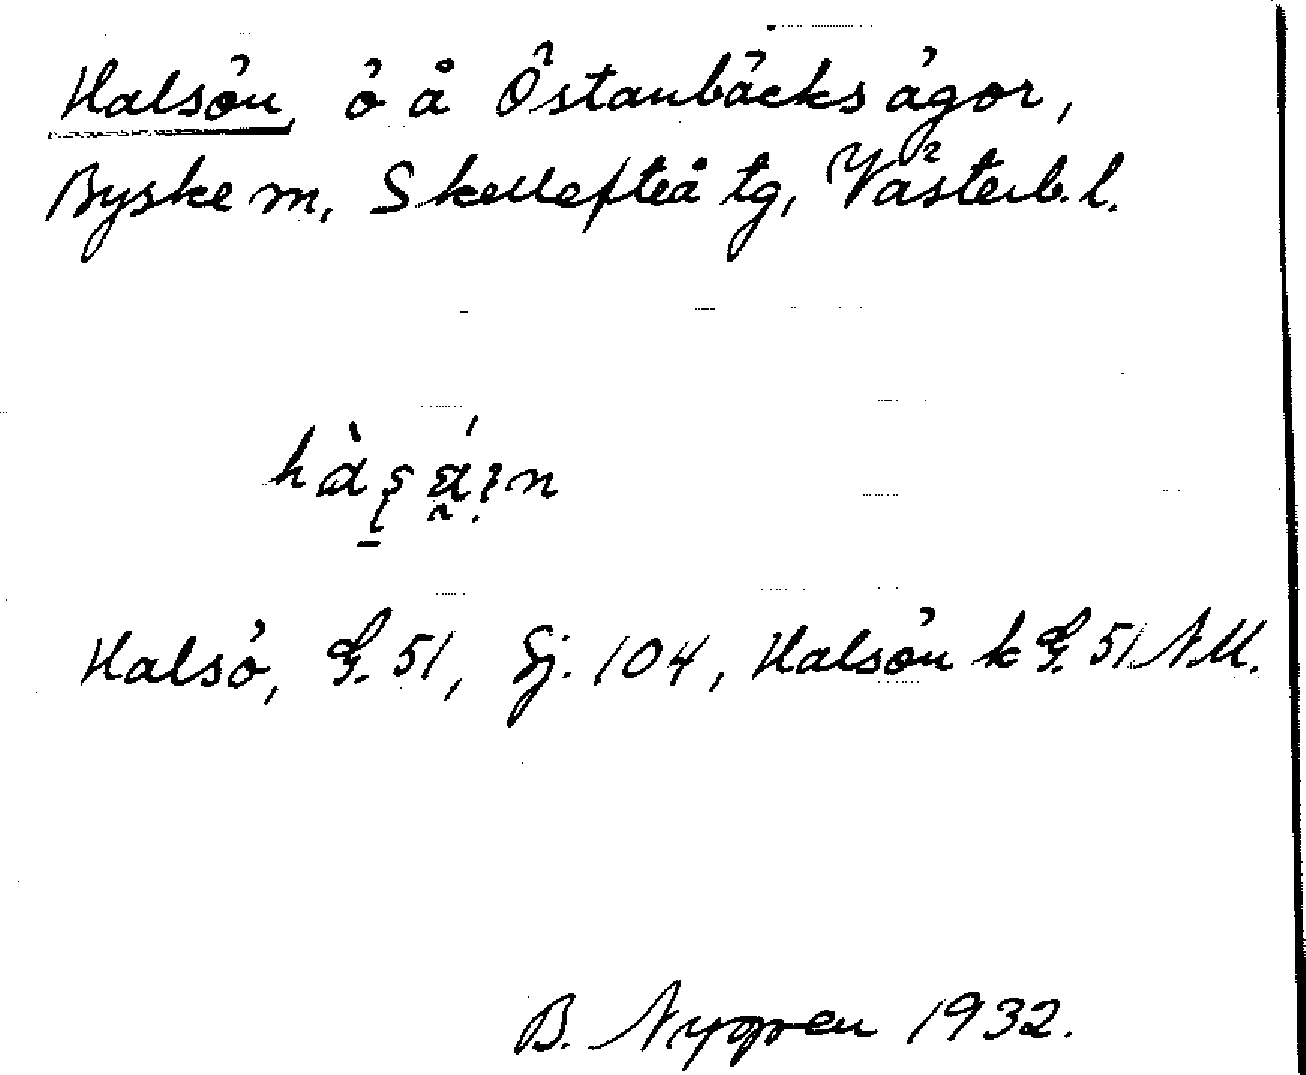 Halsön, ö å Östanbäcks ägor,
Byske sn, Skellefteå tg, Västerb. l.
Halsö, G. 51, Sj. 104, Halsön k G. 51 NU.
B. Nygren 1932.